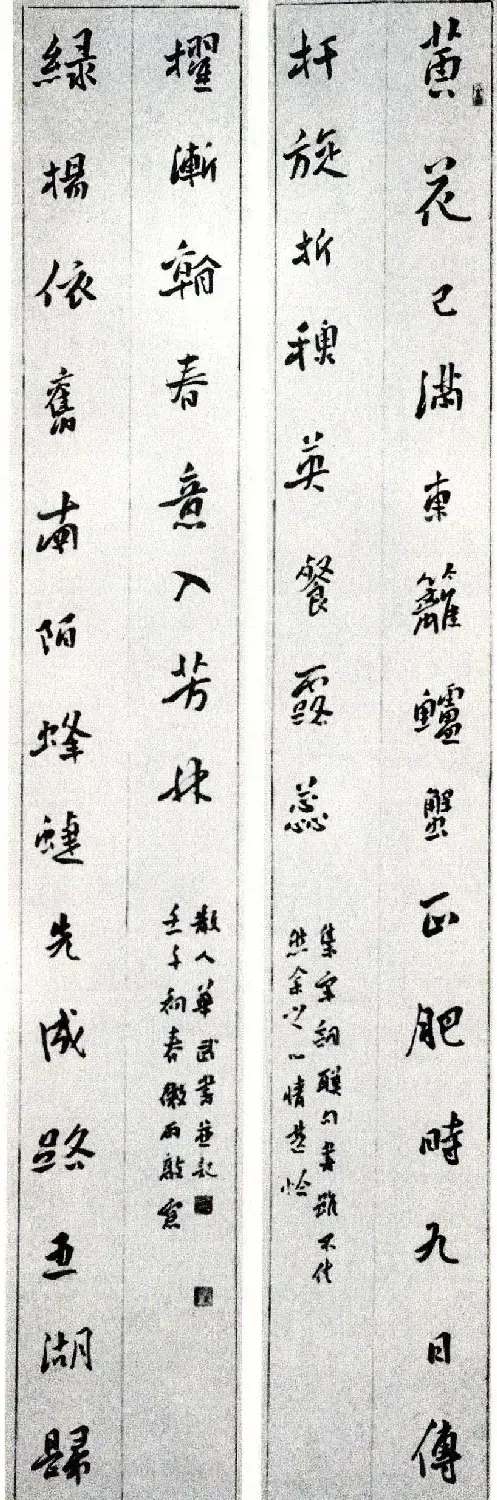 黄花已满東籬鱸蟹正肥時九日傳
杯旋折穠英餐露蕊
集宋詞聯句書雖不佳
然余之心情甚怡
緑楊依舊南陌蜂蝶先成路五湖歸
櫂漸春意入芳
散人華武書並記
壬午初春微雨敲窗